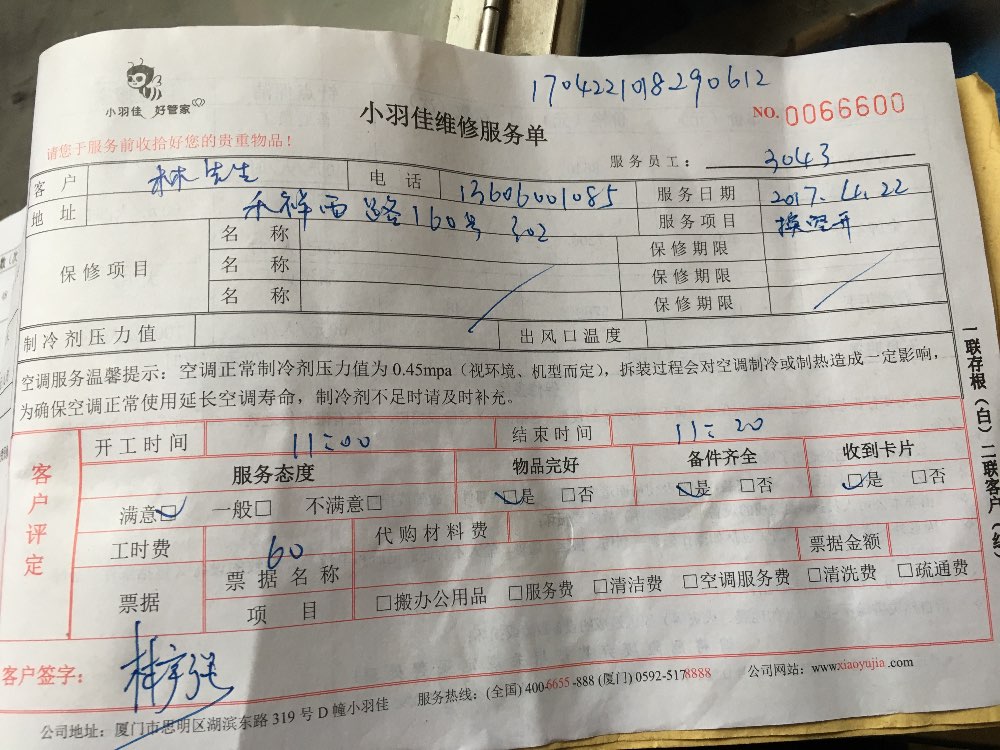 1704221018290612
小羽佳 好管家
小羽佳维修服务单
NO. 0066600
请您于服务前收拾好您的贵重物品！
服务员工： 3043
客户 林先生 电话 13606001085 服务日期 2017.4.22
地址 禾祥西路160号302 服务项目 换空开
保修项目 名称 保修期限
名称 保修期限
名称 保修期限
制冷剂压力值 出风口温度
空调服务温馨提示：空调正常制冷剂压力值为 0.45mpa（视环境、机型而定），拆装过程会对空调制冷或制热造成一定影响，
为确保空调正常使用延长空调寿命，制冷剂不足时请及时补充。
客户评定
开工时间 11:00 结束时间 11:20
服务态度 物品完好 备件齐全 收到卡片
满意□ 一般□ 不满意□ □是 □否 □是 □否 □是 □否
工时费 60 代购材料费 票据金额
票据 票据名称
项目 □搬办公用品 □服务费 □清洁费 □空调服务费 □清洗费 □疏通费
客户签字：
公司地址：厦门市思明区湖滨东路 319 号 D 幢小羽佳 服务热线：(全国) 400-6655-888 (厦门) 0592-5178888 公司网站：www.xiaoyujia.com
一联存根（白）二联客户（红）